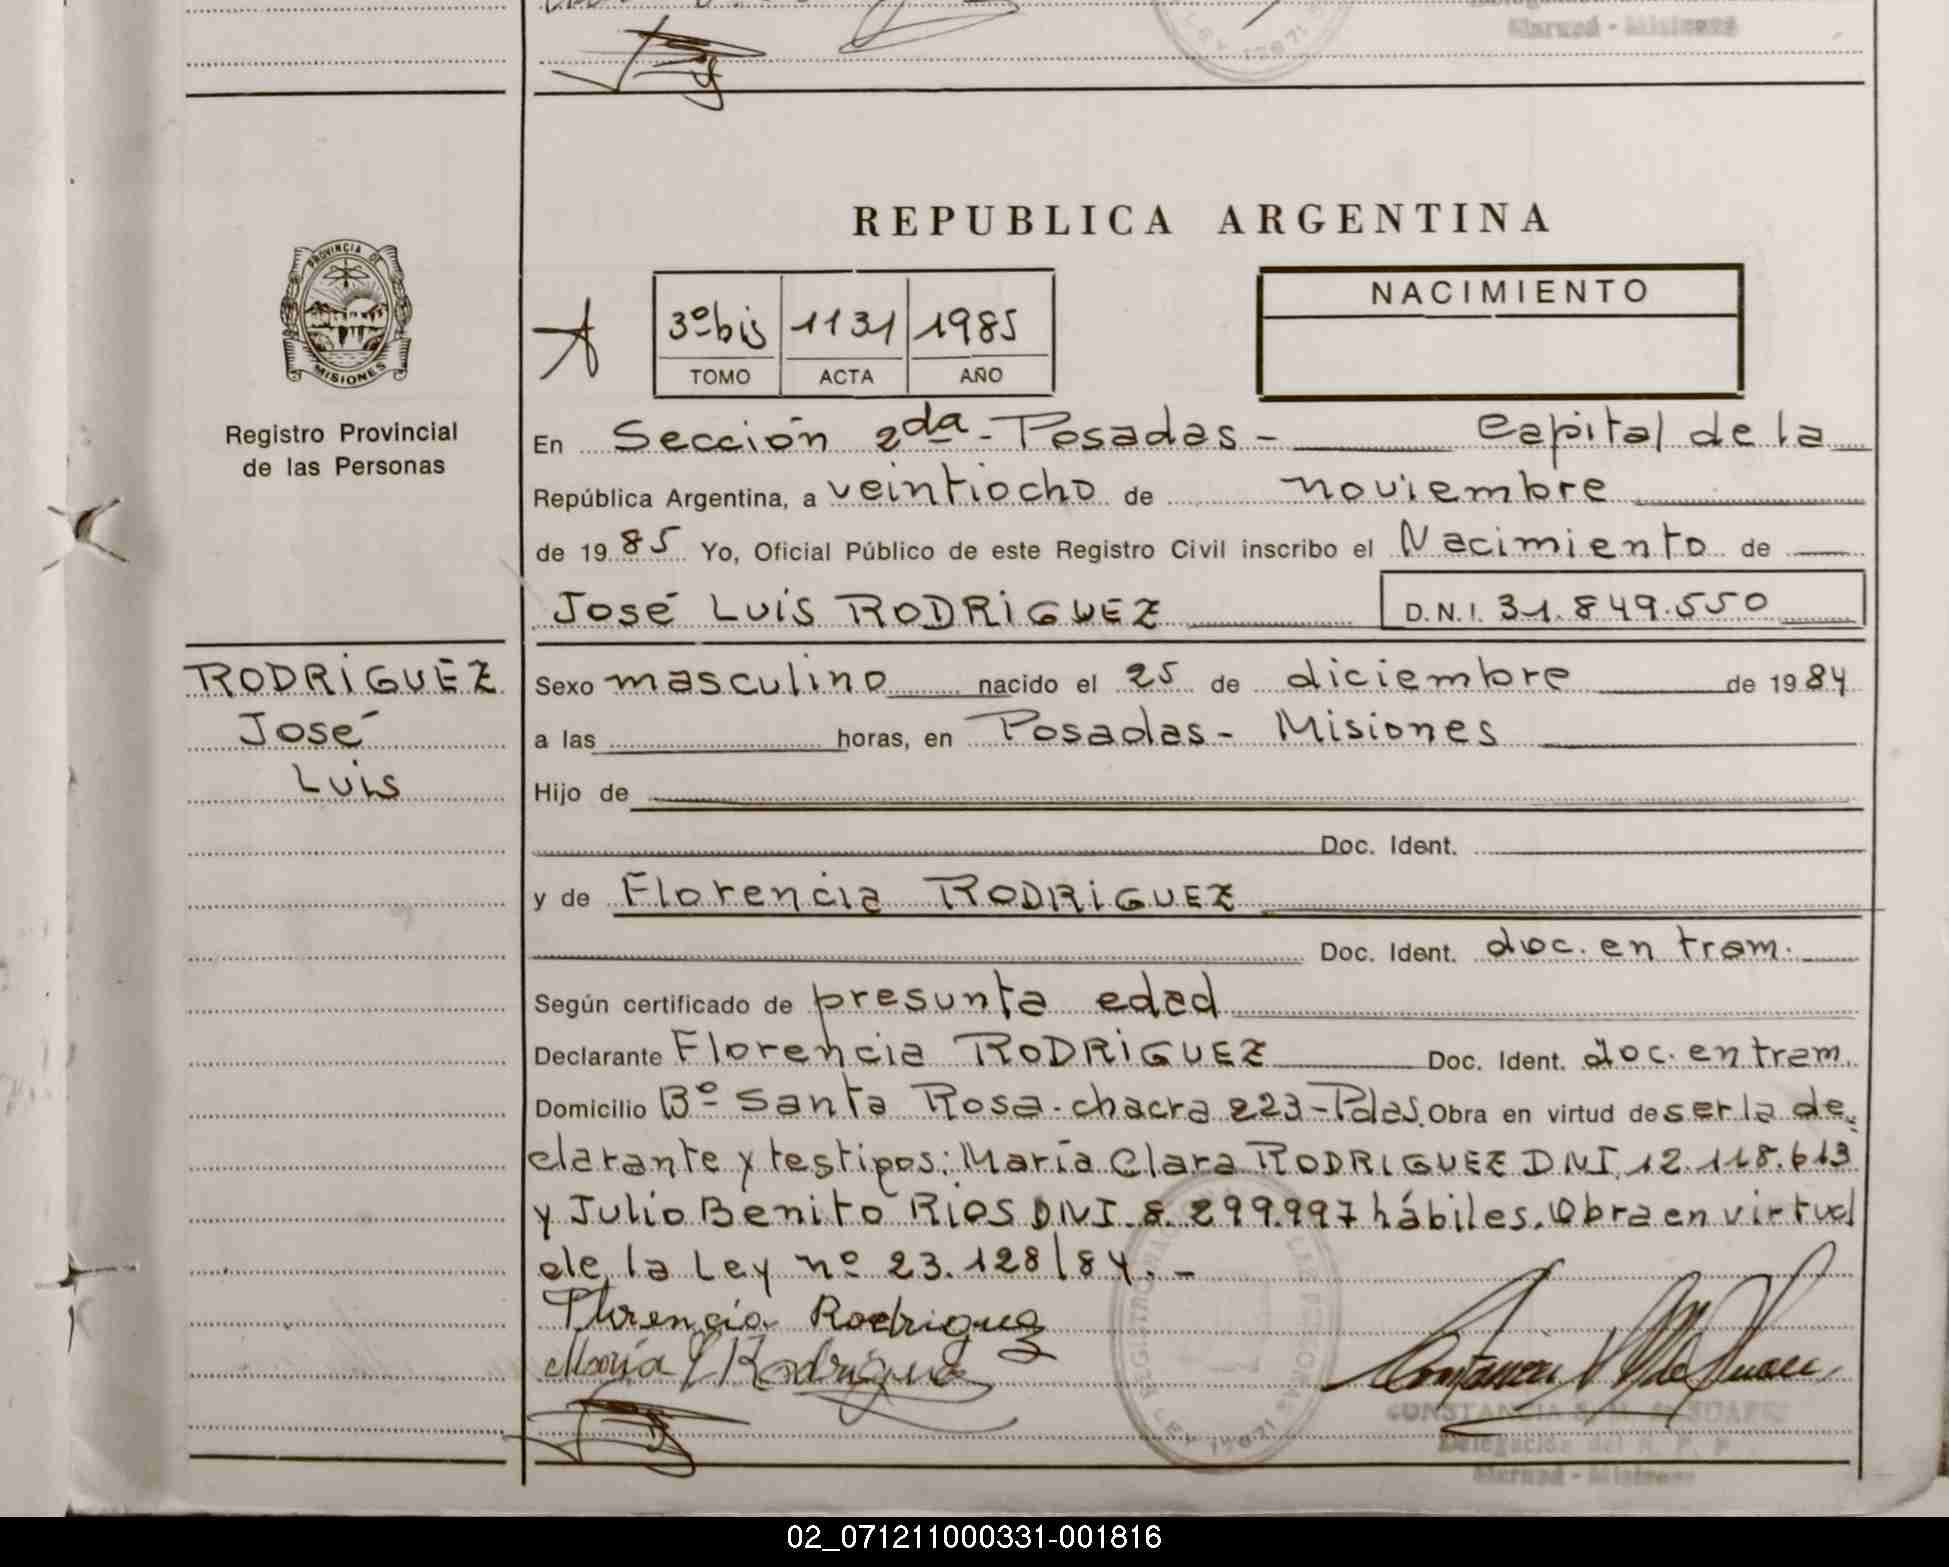 REPUBLICA ARGENTINA
PROVINCIA DE
MISIONES
Registro Provincial
de las Personas
3º bis 1131 1985
TOMO ACTA AÑO
NACIMIENTO
En Sección 2da - Posadas - Capital de la
República Argentina, a veintiocho de noviembre
de 1985 Yo, Oficial Público de este Registro Civil inscribo el Nacimiento de
José Luis RODRIGUEZ D.N.I. 31.849.550
RODRIGUEZ
José
Luis
Sexo masculino nacido el 25 de diciembre de 1984
a las horas, en Posadas - Misiones
Hijo de
Doc. Ident.
y de Florencia RODRIGUEZ
Doc. Ident. doc. en tram.
Según certificado de presunta edad
Declarante Florencia RODRIGUEZ Doc. Ident. doc. en tram.
Domicilio Bº Santa Rosa - chacra 223 - Pdas. Obra en virtud de ser la de
clarante y testigos: María Clara RODRIGUEZ DNI. 12.118.613
y Julio Benito Rios DNI. 8.299.997 hábiles. Obra en virtud
de la Ley nº 23.128/84. -
Florencia Rodriguez
María C Rodriguez
CONSTANCIA S. M. de SUAREZ
Delegación del R. P. P.
02_071211000331-001816